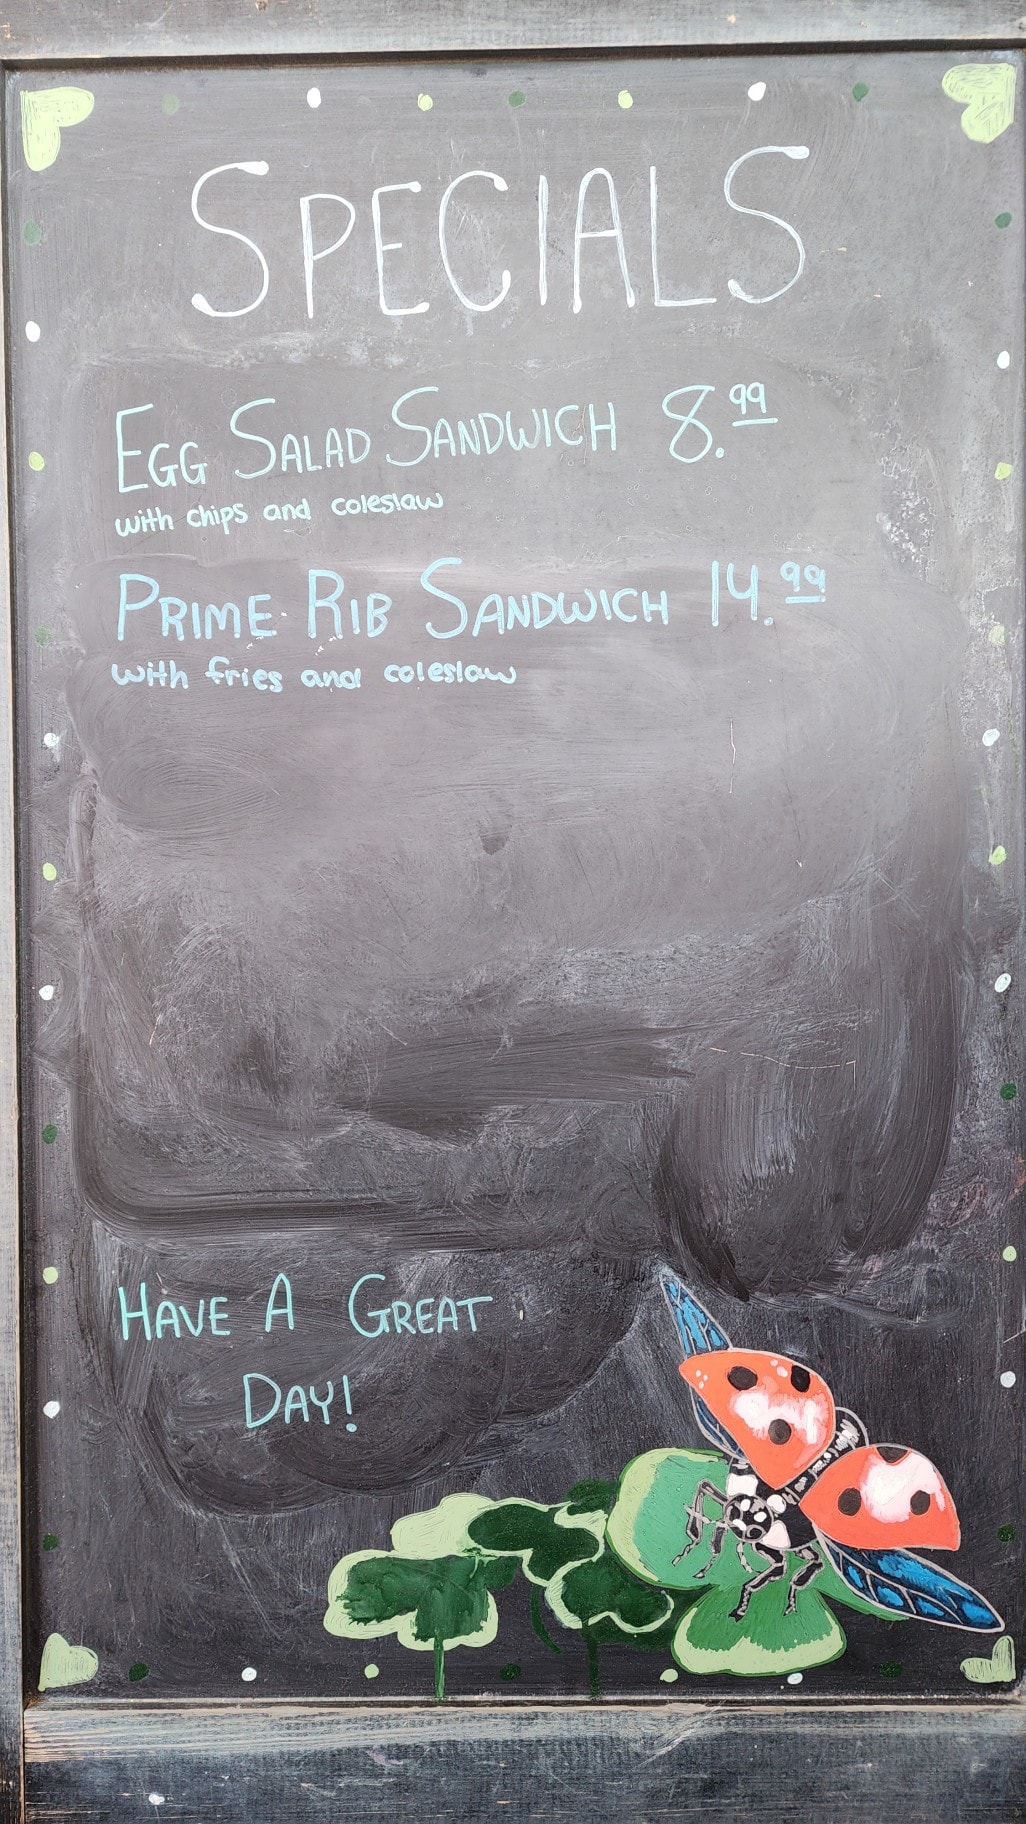 SPECIALS
EGG SALAD SANDWICH 8.99
with chips and coleslaw
PRIME RIB SANDWICH 14.99
with fries and coleslaw
HAVE A GREAT
DAY!